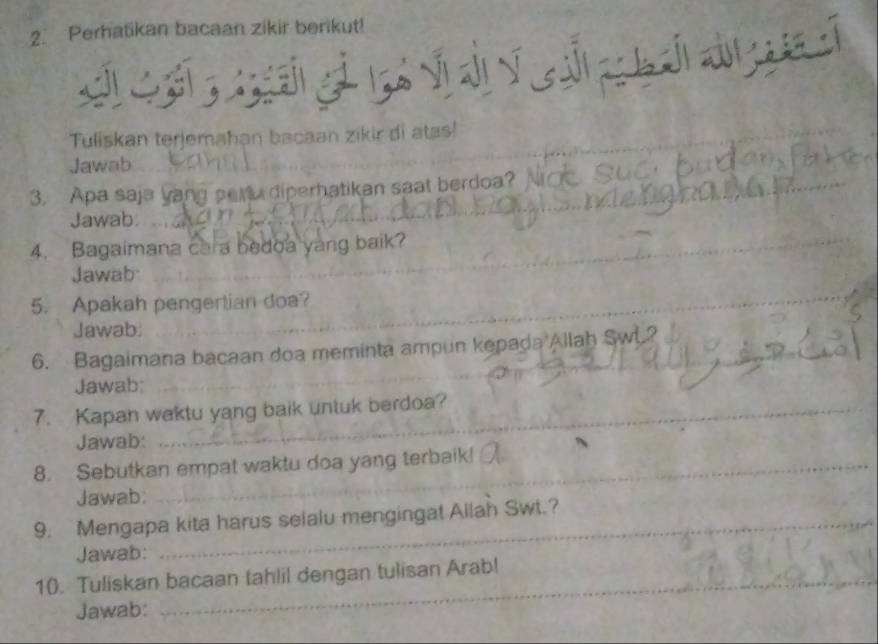 2. Perhatikan bacaan zikir berikut!
اَسْتَغْفِرُ اللهَ الْعَظِيْمَ الَّذِيْ لَآ اِلٰهَ اِلَّا هُوَ الْحَيُّ الْقَيُّوْمُ وَ اَتُوْبُ اِلَيْهِ
Tuliskan terjemahan bacaan zikir di atas!
Jawab:
3. Apa saja yang perlu diperhatikan saat berdoa?
Jawab: dan
4. Bagaimana cara bedoa yang baik?
Jawab:
5. Apakah pengertian doa?
Jawab:
6. Bagaimana bacaan doa meminta ampun kepada Allah Swt.?
Jawab:
7. Kapan waktu yang baik untuk berdoa?
Jawab:
8. Sebutkan empat waktu doa yang terbaik!
Jawab:
9. Mengapa kita harus selalu mengingat Allah Swt.?
Jawab:
10. Tuliskan bacaan tahlil dengan tulisan Arab!
Jawab: